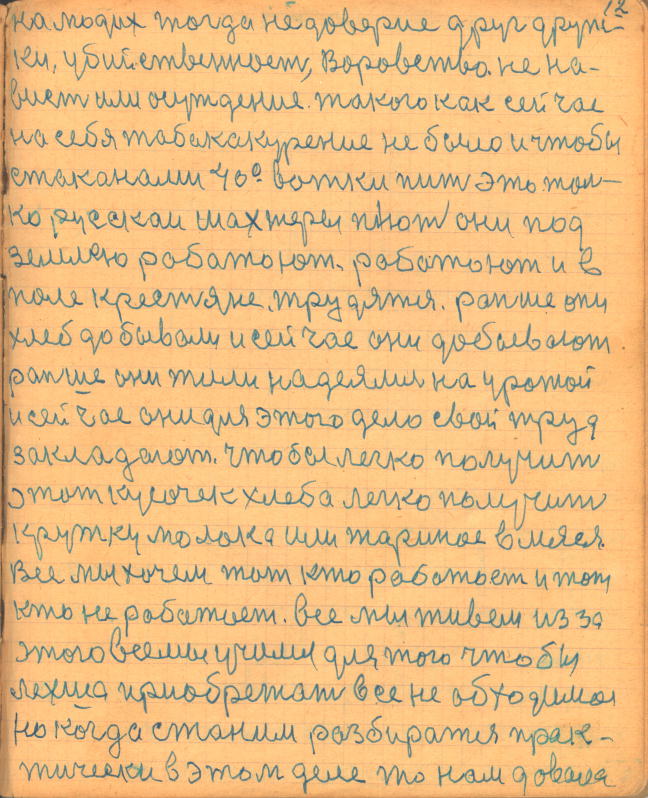 12
на людих тогда недоверие друг друж-
ки, убийственност, Воровства. не на-
вист или осуждение. такого как сей час
на себя табакакурение не было и чтобы
стаканами 40° вотки пит это тол-
ко русскаи шахтеры пют они под
землею работают. работают и в
поле крестяне. трудятся. ранше они
хлеб добывали и сей час они добывают.
ранше они жили надеялис на урожой
и сей час они для этого дело свой труд
закладают. чтобы легко получит
этот кусочек хлеба легко получит
кружку молока или жариное в мяся.
Все мы хочем тот кто работает и тот
кто не работает. все мы живем из за
этого все мы учимся для того что бы
лехша приобретат все не обходимое
но когда станим разбиратя прак-
тически в этом деле то нам